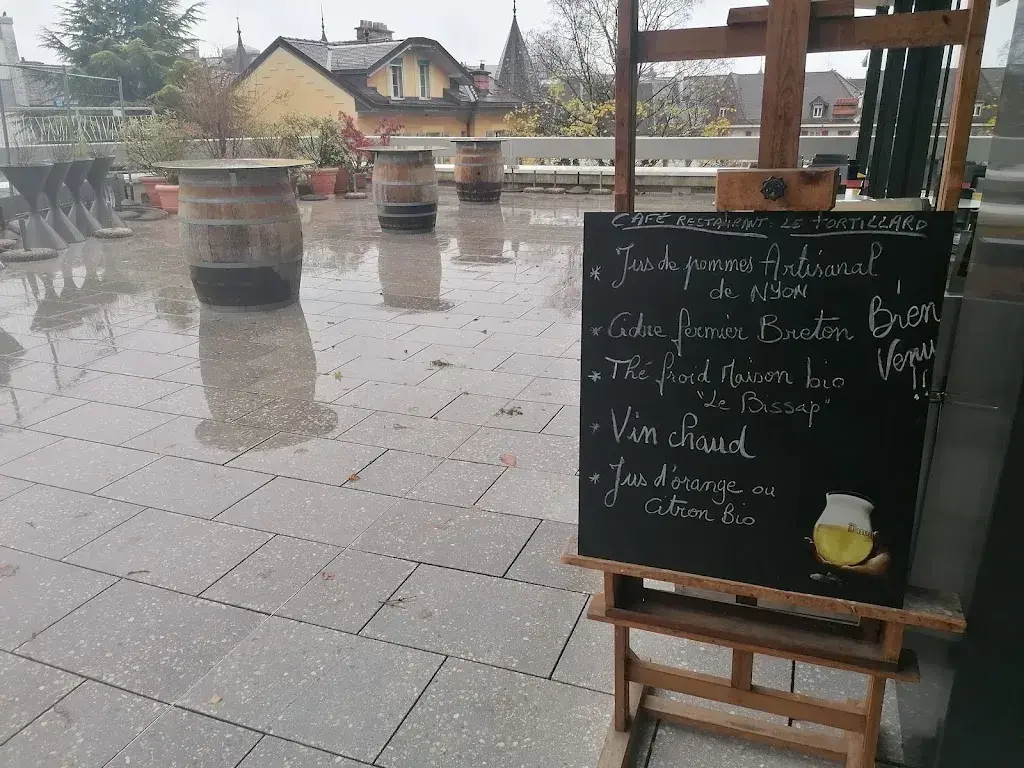 CAFÉ RESTAURANT LE TORTILLARD
* Jus de pommes Artisanal
de NYON
* Cidre fermier Breton
* Thé froid Maison bio
"Le Bissap"
* Vin chaud
* Jus d'orange ou
Citron Bio
Bien
Venu
!!